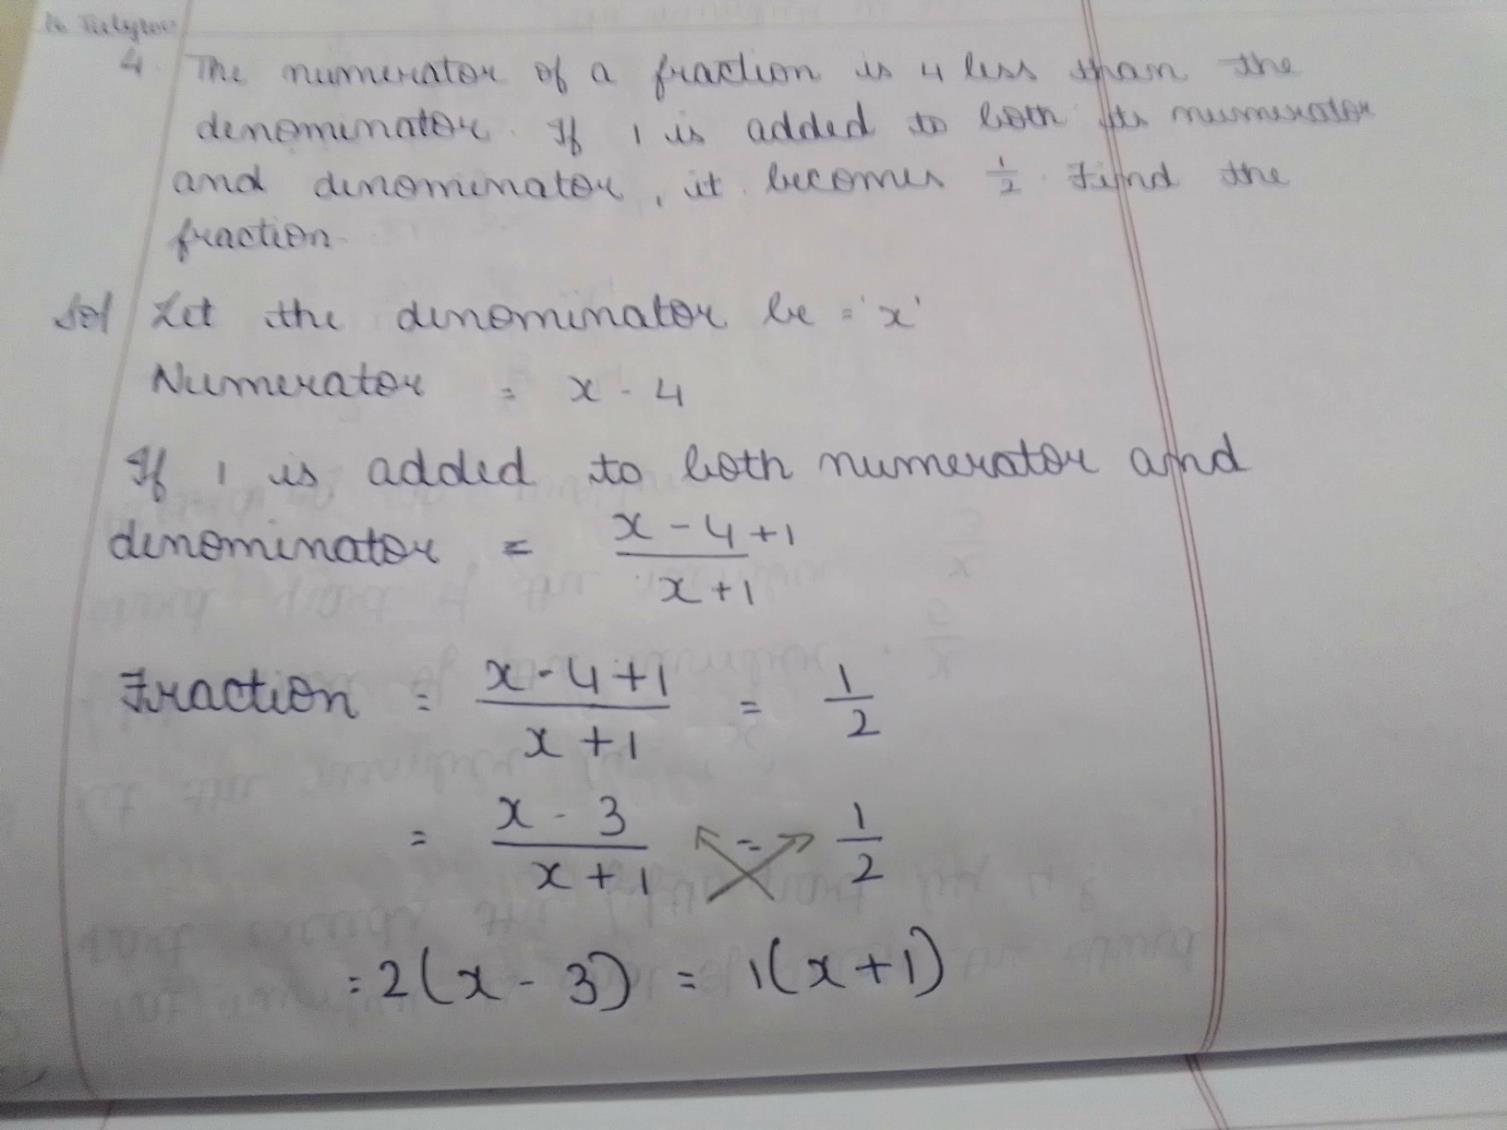 4. The numerator of a fraction is 4 less than the
denominator. If 1 is added to both its numerator
and denominator, it becomes 1/2. Find the
fraction.
Sol Let the denominator be = 'x'
Numerator = x - 4
If 1 is added to both numerator and
denominator = (x - 4 + 1)/(x + 1)
Fraction = (x - 4 + 1)/(x + 1) = 1/2
= (x - 3)/(x + 1) = 1/2
= 2(x - 3) = 1(x + 1)